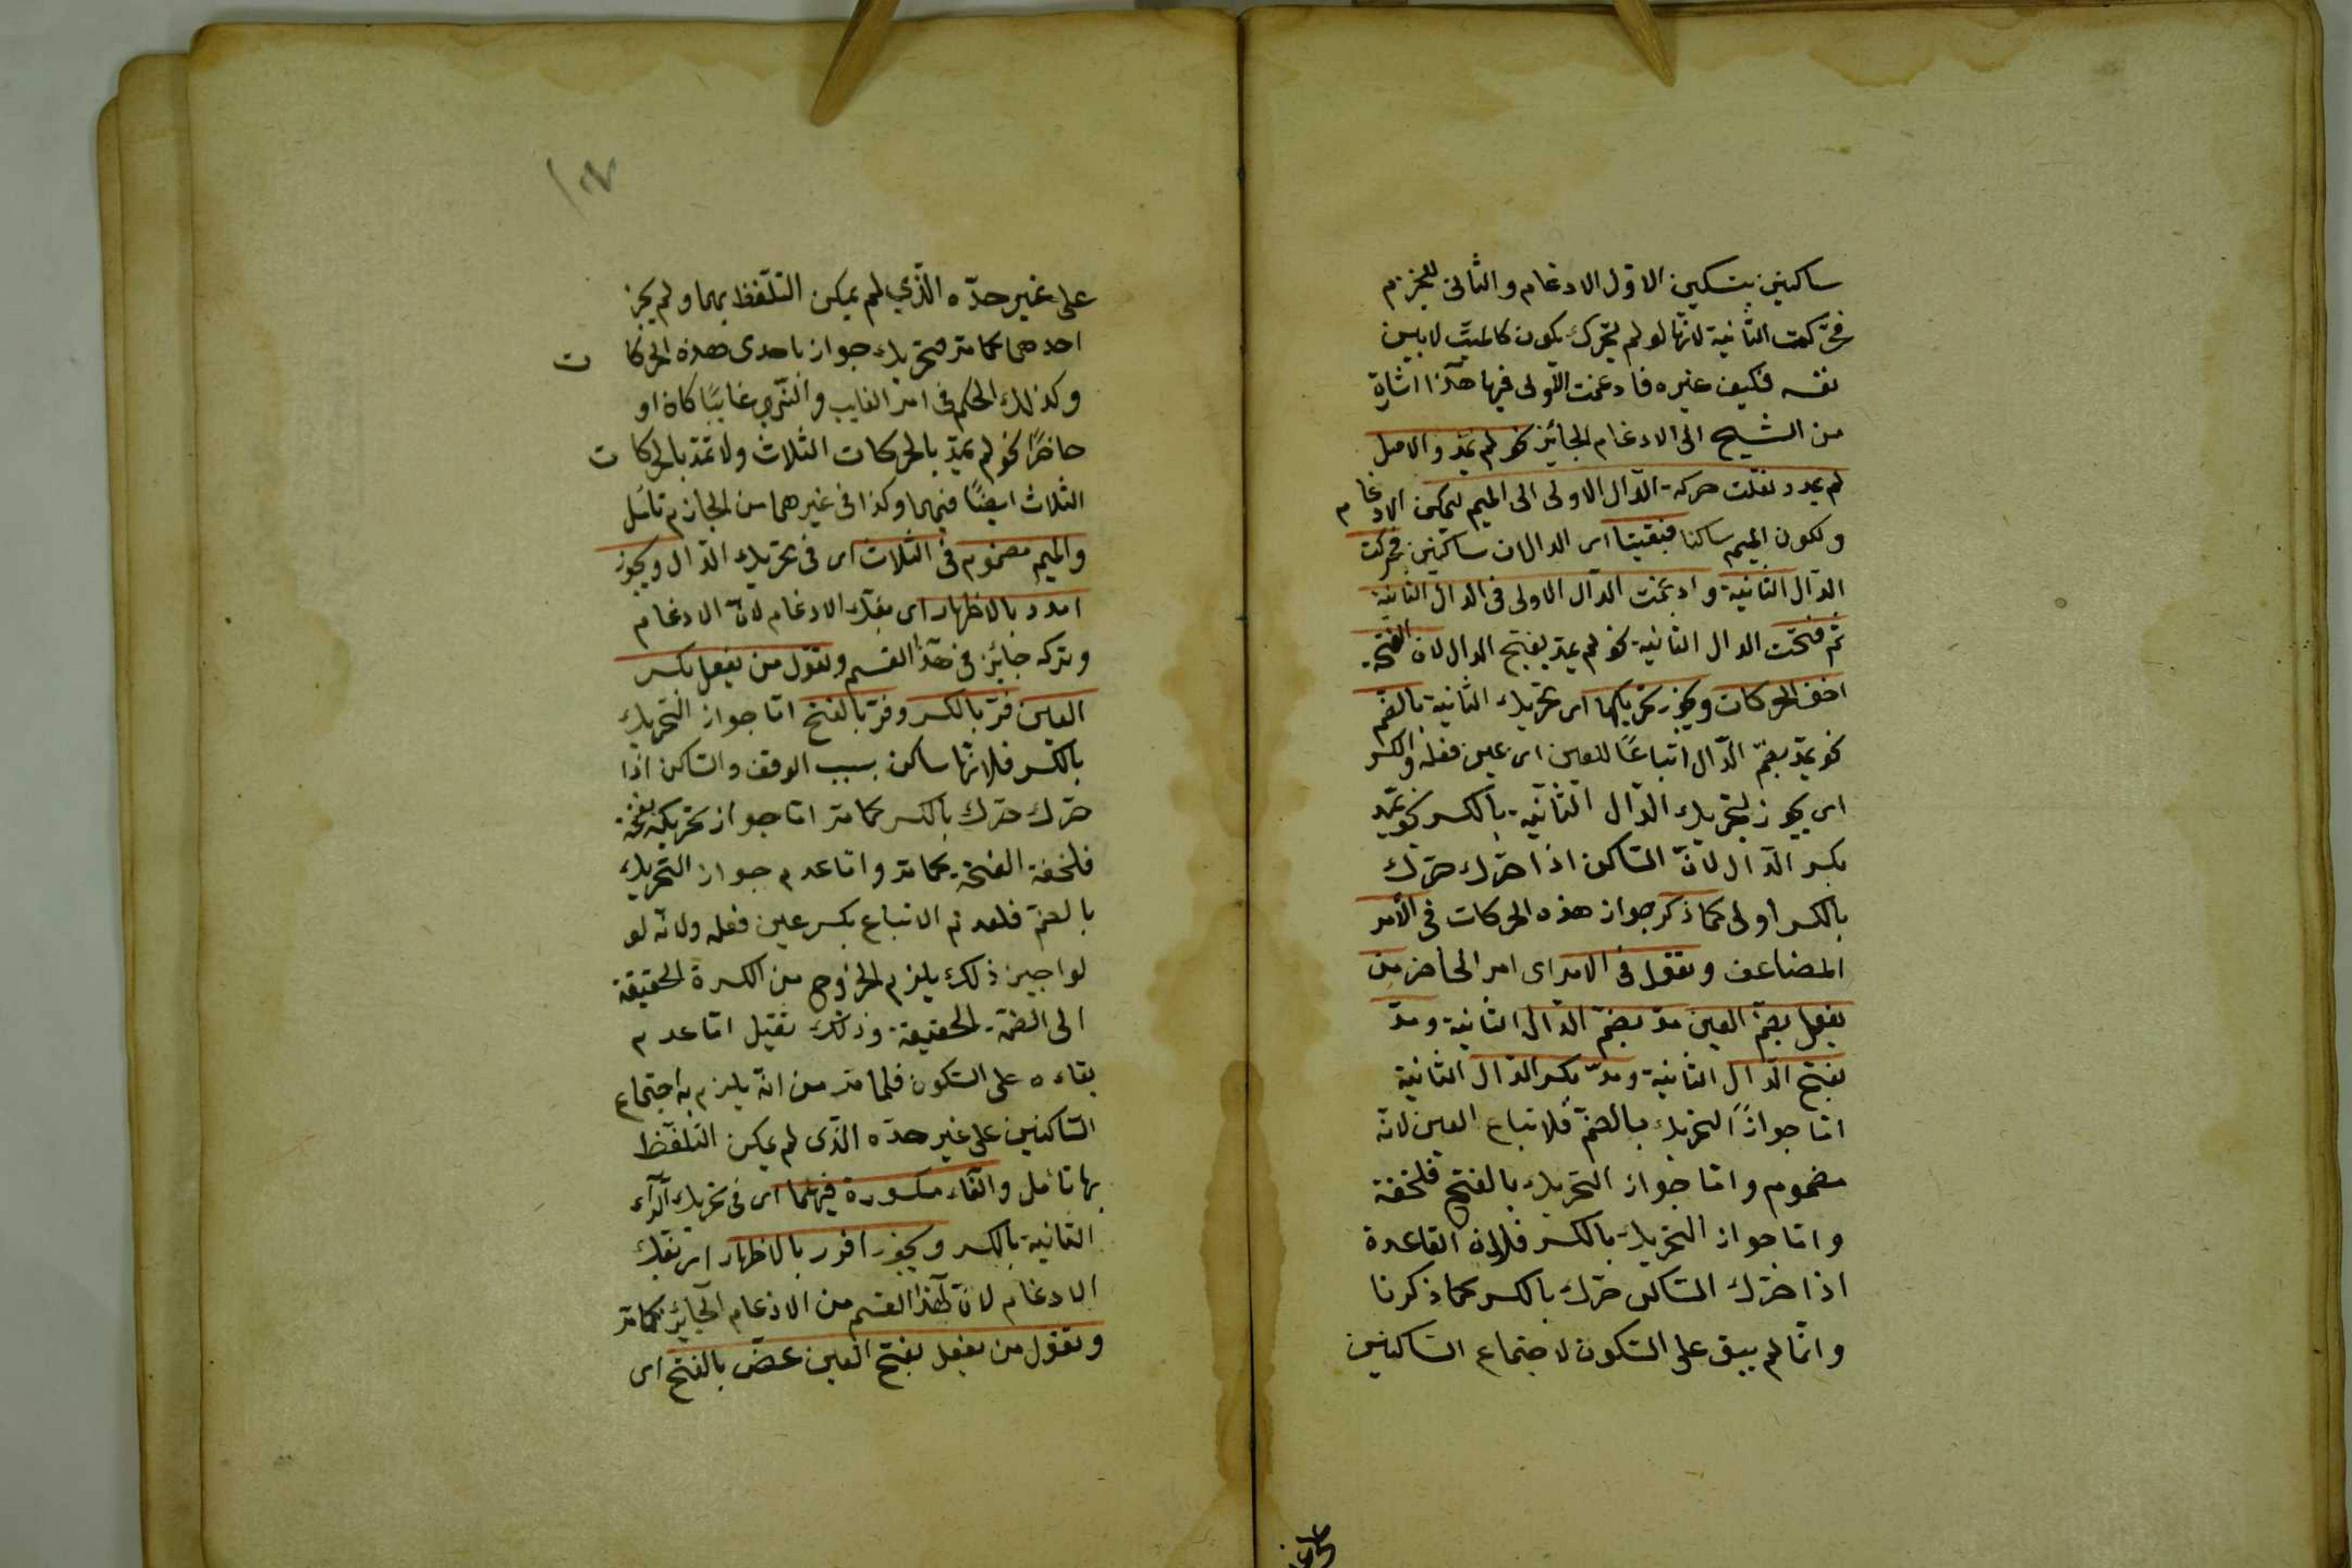 ساكنين بتسكين الاوّل الادغام والثانى للجزم
فحرّكت الثّانية لانّها لو لم يتحرّك يكون كالميّت لا يبين
نفسه فكيف غيره فادغمت الاولى فيها هذا اشارة
من الشيخ الى الادغام الجائز نحو لم يمدّ والاصل
لم يمدد نقلت حركة الدّال الاولى الى الميم ليمكن الادغام
ولكون الميم ساكنا فبقيتا اى الدالان ساكنين فحركت
الدّال الثانية وادغمت الدّال الاولى فى الدال الثانية
ثم فتحت الدال الثانية نحو لم يمدّ بفتح الدال لان الفتحة
اخف الحركات ويجوز تحريكها اى تحريك الثانية بالضم
نحو يمدّ بضمّ الدّال اتباعًا للعين اى عين فعله والكسر
اى يجوز لتحريك الدّال الثّانية بالكسر نحو يمدّ
بكسر الدّال لانّ السّاكن اذا حرّك حرّك
بالكسر أولى كما ذكر جواز هذه الحركات فى الأمر
المضاعف وتقول فى الامر اى امر الحاضر من
يفعل بضمّ العين مدّ بضمّ الدّال الثانية ومدّ
بفتح الدّال الثانية ومدّ بكسر الدّال الثانية
امّا جواز التحريك بالضمّ فلاتباع العين لانّه
مضموم وامّا جواز التحريك بالفتح فلخفة
وامّا جواز التحريك بالكسر فلان القاعدة
اذا حرّك السّاكن حرّك بالكسر كما ذكرنا
وانّما لم يبق على السّكون لاجتماع السّاكنين
على غير
على غير حدّه الّذي لم يمكن التلفّظ بهما ولم يجز
احدهما كما مرّ لتحريك جواز باحدى هذه الحركات
وكذلك الحكم فى امر الغايب والنّهى غائبًا كان او
حاضرًا نحو لم يمدّ بالحركات الثلاث ولا تمدّ بالحركات
الثلاث ايضًا فيهما وكذا فى غيرهما من الجازم تأمّل
والميم مضموم فى الثّلاث اى فى تحريك الدّال ويجوز
امدد بالاظهار اى بفكّ الادغام لانّ الادغام
وتركه جائز فى هذا القسم وتقول من يفعل بكسر
العين فرّ بالكسر وفرّ بالفتح امّا جواز التحريك
بالكسر فلانّها ساكن بسبب الوقف والسّاكن اذا
حرّك حرّك بالكسر كما مرّ امّا جواز تحريكه بفتحة
فلخفة الفتحة كما مرّ وامّا عدم جواز التحريك
بالضمّ فلعدم الاتباع بكسر عين فعله ولانّه لو
لواجيز ذلك يلزم الخروج من الكسرة الحقيقة
الى الضمّة الحقيقة وذلك ثقيل امّا عدم
بقاءه على السّكون فلما مرّ من انّه يلزم به اجتماع
السّاكنين على غير حدّه الذّى لم يمكن التلفّظ
بها تأمل والفّاء مكسورة فيهما اى فى تحريك الرّاء
الثانية بالكسر ويجوز افرر بالاظهار اى بفكّ
الادغام لانّ هذا القسم من الادغام الجائز كما مرّ
وتقول من يفعل بفتح العين عضّ بالفتح اى